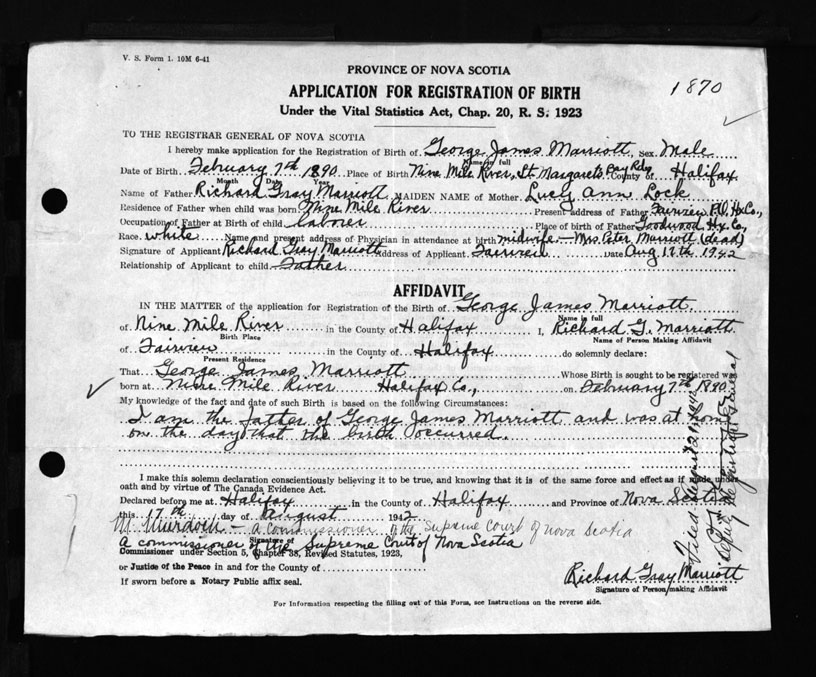 V. S. Form 1. 10M 6-41
PROVINCE OF NOVA SCOTIA
1870
APPLICATION FOR REGISTRATION OF BIRTH
Under the Vital Statistics Act, Chap. 20, R. S. 1923
TO THE REGISTRAR GENERAL OF NOVA SCOTIA
I hereby make application for the Registration of Birth of George James Marriott, Sex Male
Name in full
Date of Birth February 7th 1890 Place of Birth Nine Mile River, St Margarets Bay Rd, County of Halifax
Month Date Year
Name of Father Richard Gray Marriott MAIDEN NAME of Mother Lucy Ann Lock
Residence of Father when child was born Nine Mile River Present address of Father Fairview P.O. Hx Co.,
Occupation of Father at Birth of child laborer Place of birth of Father Goodwood Hx Co,
Race white Name and present address of Physician in attendance at birth midwife - Mrs. Peter Marriott (dead)
Signature of Applicant Richard Gray Marriott Address of Applicant Fairview Date Aug 17th 1942
Relationship of Applicant to child Father
AFFIDAVIT
IN THE MATTER of the application for Registration of the Birth of George James Marriott
Name in full
of Nine Mile River in the County of Halifax I, Richard G. Marriott
Birth Place Name of Person Making Affidavit
of Fairview in the County of Halifax do solemnly declare:
Present Residence
That George James Marriott Whose Birth is sought to be registered was
born at Nine Mile River Halifax Co., on February 7th 1890
My knowledge of the fact and date of such Birth is based on the following Circumstances:
I am the father of George James Marriott and was at home
on the day that the birth occurred.
I make this solemn declaration conscientiously believing it to be true, and knowing that it is of the same force and effect as if made under
oath and by virtue of The Canada Evidence Act.
Declared before me at Halifax in the County of Halifax and Province of Nova Scotia
this 17th day of August 1942
M. Murdoch - a commissioner of the Supreme Court of Nova Scotia
Signature of
a commissioner of the Supreme Court of Nova Scotia
Commissioner under Section 5, Chapter 38, Revised Statutes, 1923,
or Justice of the Peace in and for the County of
If sworn before a Notary Public affix seal.
Richard Gray Marriott
Signature of Person making Affidavit
For Information respecting the filling out of this Form, see Instructions on the reverse side.
Filed August 21st 1942
Deputy Registrar General